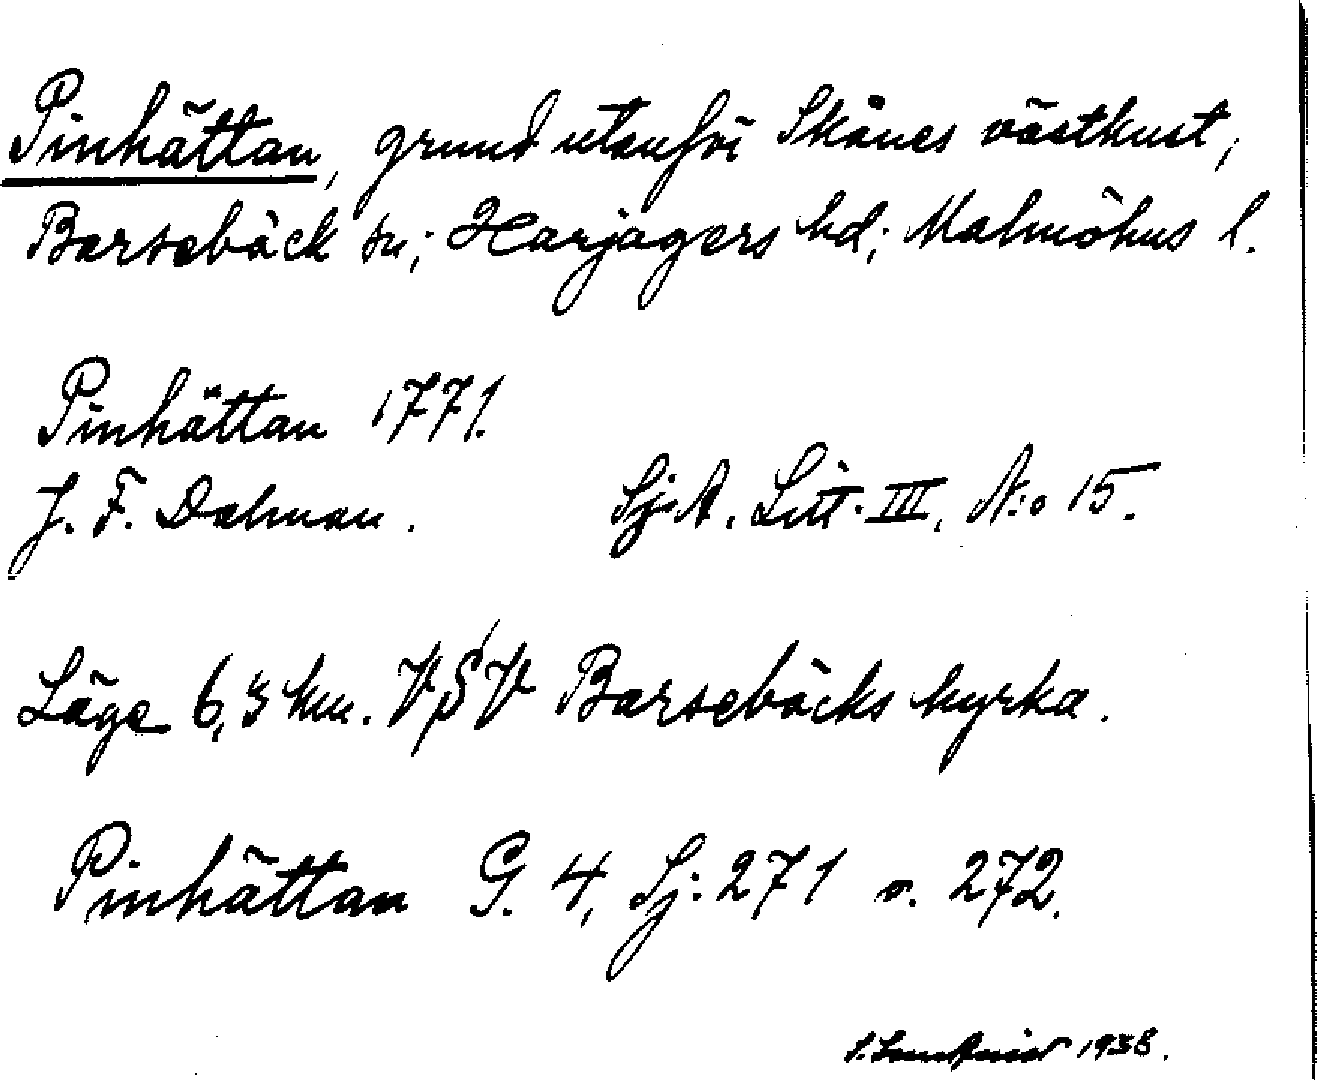 Pinhättan, grund utanför Skånes västkust,
Barsebäck sn; Harjagers hd; Malmöhus l.
Pinhättan 1771.
J. F. Dalman. SjA. Litt. III, N:o 15.
Läge 6,3 km. VSV Barsebäcks kyrka.
Pinhättan G. 4, Sj: 271 o. 272.
1938.